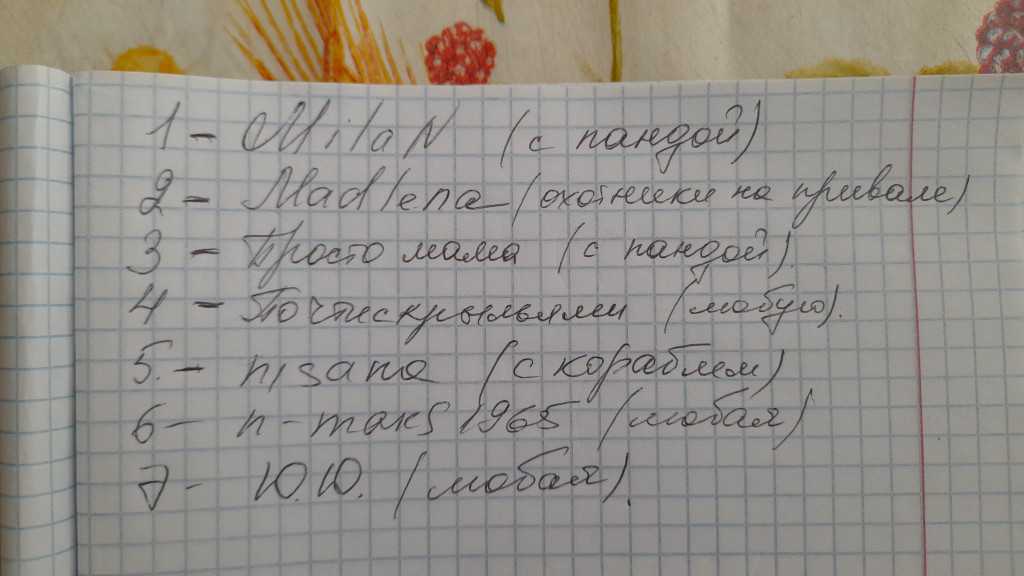 1 - MilaN (с пандой)
2 - Madlena (охотники на привале)
3 - Просто мама (с пандой)
4 - Почтискрыльями (любую).
5. - nisana (с кораблем)
6 - n-maks 1965 (любая)
7 - Ю.Ю. (любая).